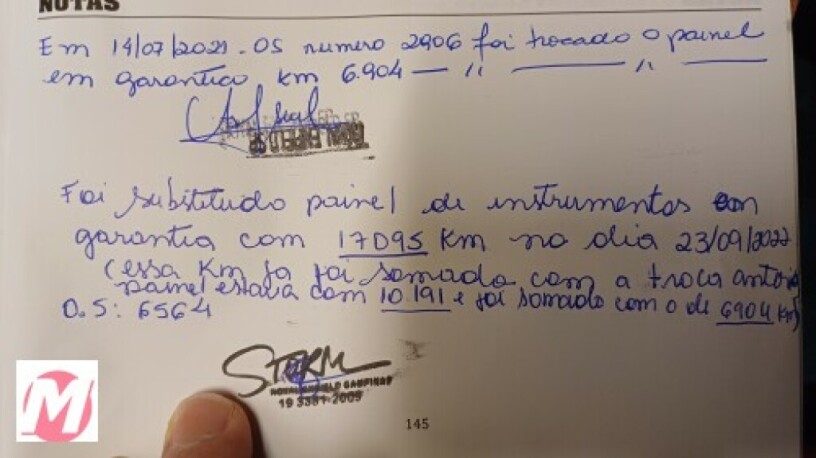 NOTAS
Em 14/07/2021 - OS numero 2906 foi trocado o painel
em garantia km 6.904 — " — " —
ROYAL ENFIELD SP
Foi substituido painel de instrumentos em
garantia com 17095 Km no dia 23/09/2022
(essa Km ja foi somada com a troca
painel estava com 10.191 e foi somado com o de 6904 km)
O.S: 6564
STORM
ROYAL ENFIELD CAMPINAS
19 3381-2009
145
M